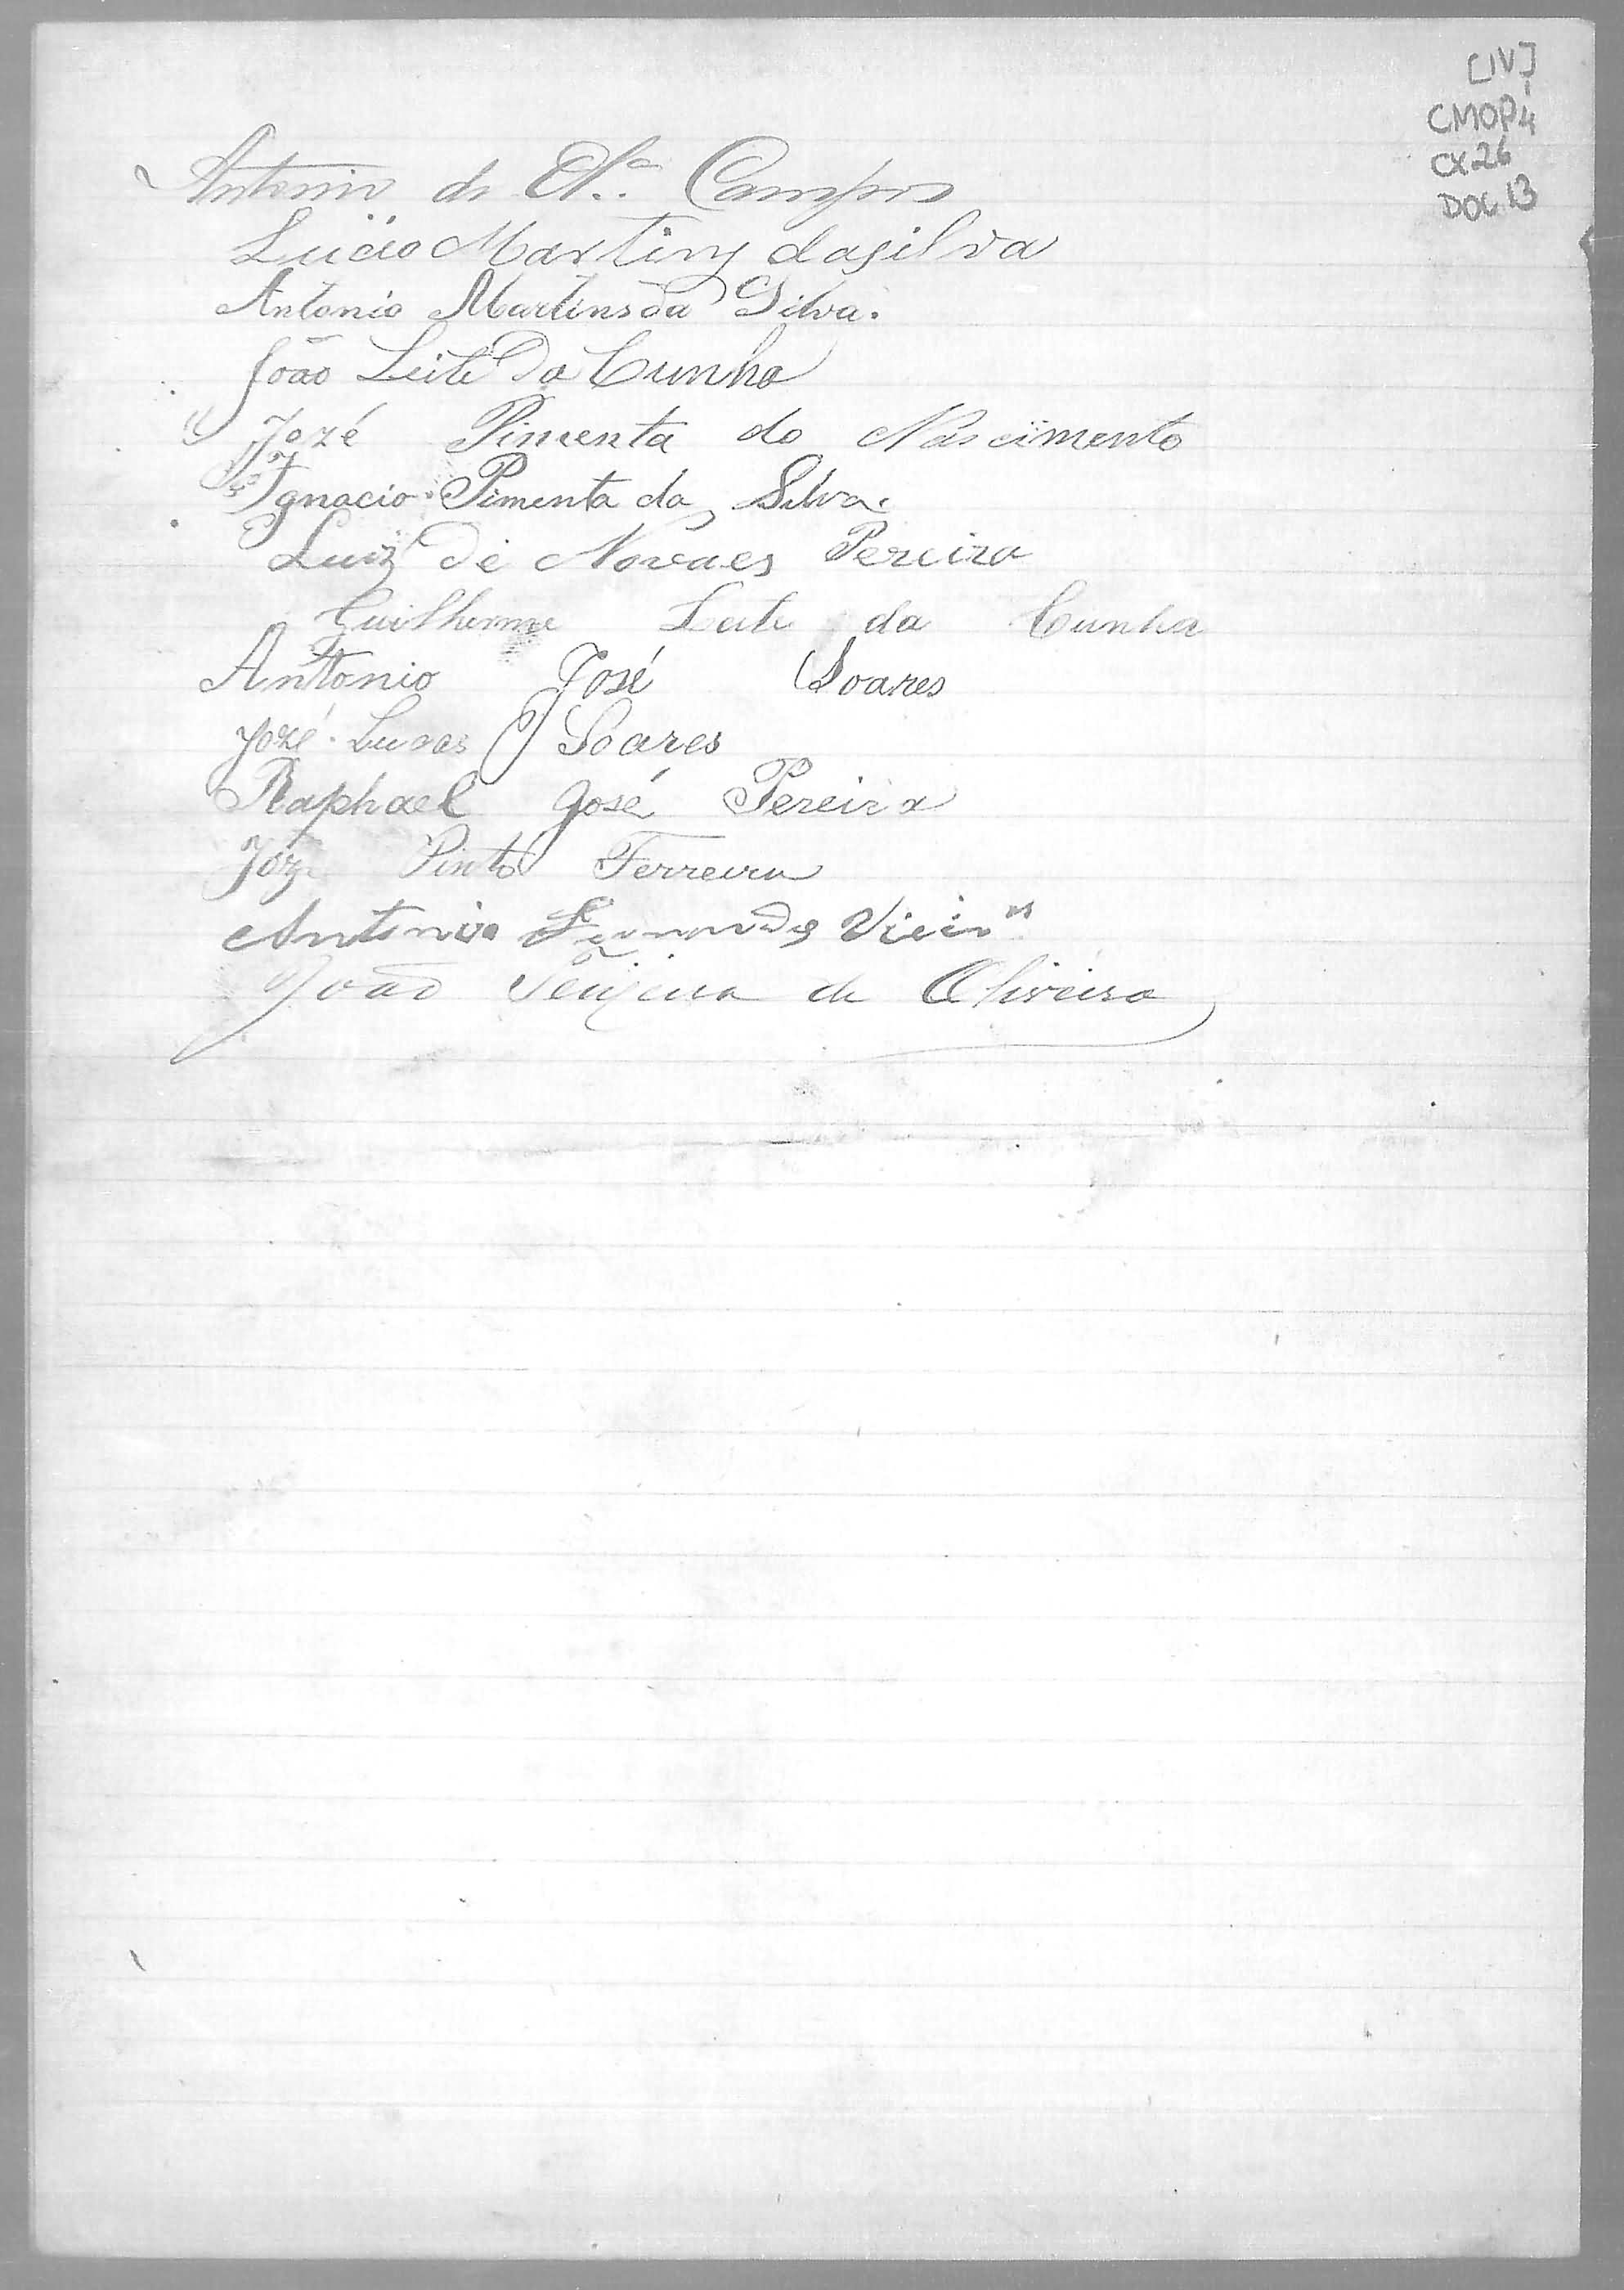 [IV]
CMOP4
CX26
DOC 13
Antonio de Olª. Campos
Lucio Martins dasilva
Antonio Martins da Silva.
João Leite Da Cunha
Jozé Pimenta do Nascimento
Ignacio Pimenta da Silva.
Luiz De Novaes Pereira
Guilherme Leite da Cunha
Antonio José Soares
Jozé Lucas Soares
Raphael José Pereira
Joze Pinto Ferreira
Antonio Fernandes Vieira
João Teixeira de Oliveira